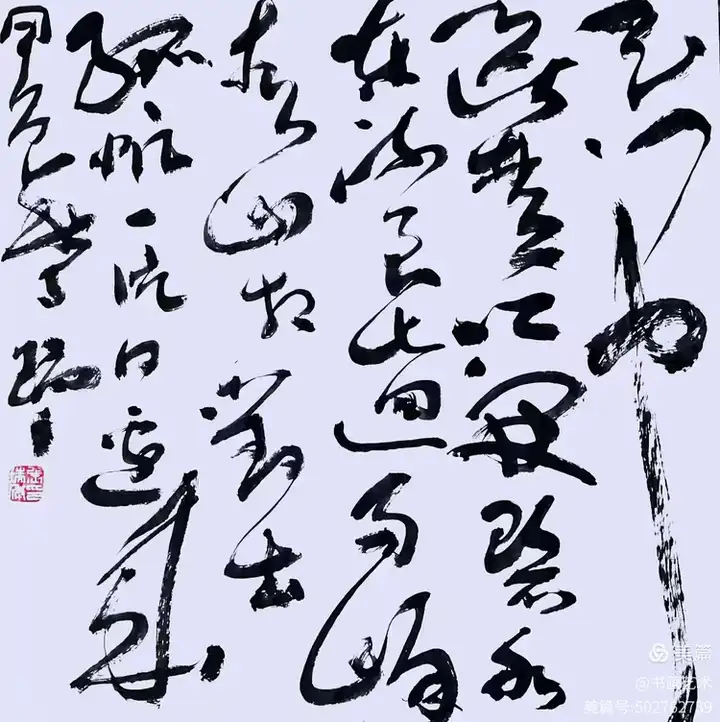 天門中
斷楚江開碧水
東流至此回兩岸
青山相對出
孤帆一片日邊來
美篇
@书画艺术
美篇号:502762739